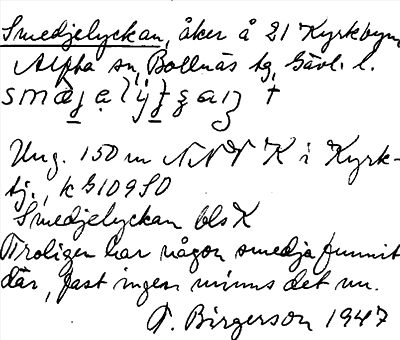 Smedjelyckan, åker å 21 Kyrkbyn
Alfta sn, Bollnäs tg, Gävl. l.
Ung. 150 m NNV K i Kyrk-
by, k G109SO
Smedjelyckan bls K
Troligen har någon smedja funnit
där, fast ingen minns det nu.
T. Birgerson 1947